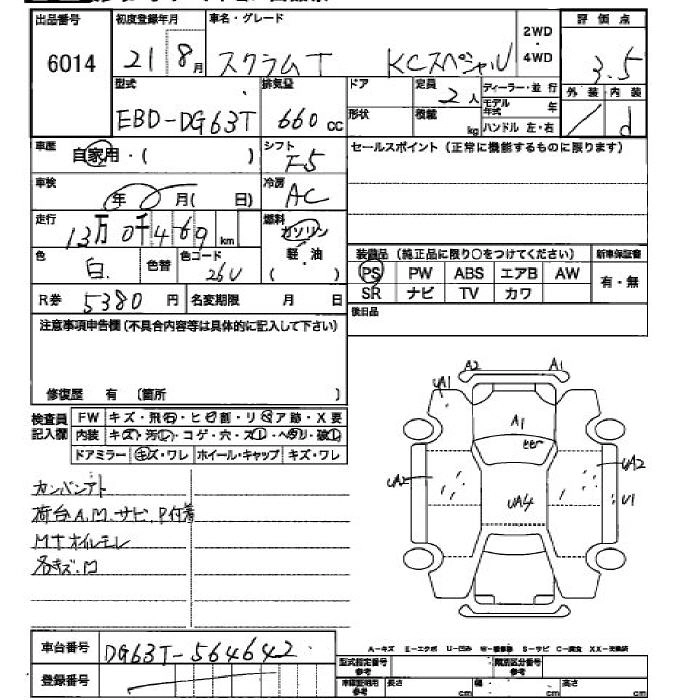 出品番号 初度登録年月 車名・グレード 2WD・4WD 評価点
6014 21 8月 スクラムT KCスペシャル 3.5
型式 排気量 ドア 定員 2人 ディーラー・並行 外装 内装
EBD-DG63T 660cc 形状 積載 kg モデル年式 年 ハンドル 左・右 d
車歴 自家用・( ) シフト F5 セールスポイント (正常に機能するものに限ります)
車検 年 月( 日) 冷房 AC
走行 13万0千469km 燃料 ガソリン 軽・油 ( )
色 白. 色替 色コード 26U
装備品 (純正品に限り○をつけてください) 新車保証書
PS PW ABS エアB AW 有・無
SR ナビ TV カワ
R券 5380円 名変期限 月 日
後日品
注意事項申告欄 (不具合内容等は具体的に記入して下さい)
修復歴 有 〔箇所 〕
検査員記入欄 FW キズ・飛石・ヒビ割・リペア跡・X要
内装 キズ・汚レ・コゲ・穴・スレ・ヘタリ・破レ
ドアミラー キズ・ワレ ホイール・キャップ キズ・ワレ
A2 A1
UA1
A1
UA2
UA4
U1
カンバンアト
荷台A.M.サビ.P付着
MTオイルモレ
各キズ.M
A-キズ E-エクボ U-凹み W-補修跡 S-サビ C-腐食 XX-交換済
車台番号 DG63T-564642
型式指定番号 参考 類別区分番号 参考
登録番号
車検証明用 参考 長さ cm 幅 cm 高さ cm